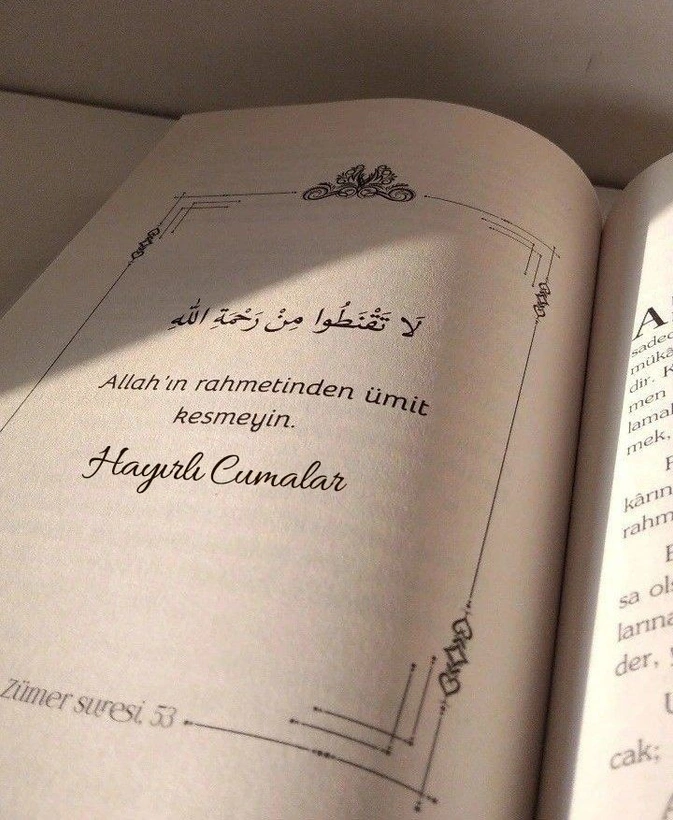 لَا تَقْنَطُوا مِنْ رَحْمَةِ اللّٰهِ
Allah'ın rahmetinden ümit
kesmeyin.
Hayırlı Cumalar
Zümer suresi, 53
A
sadec
mükâ
dir. K
men
lamal
mek,
kârın
rahm
sa ols
larına
der,
cak;